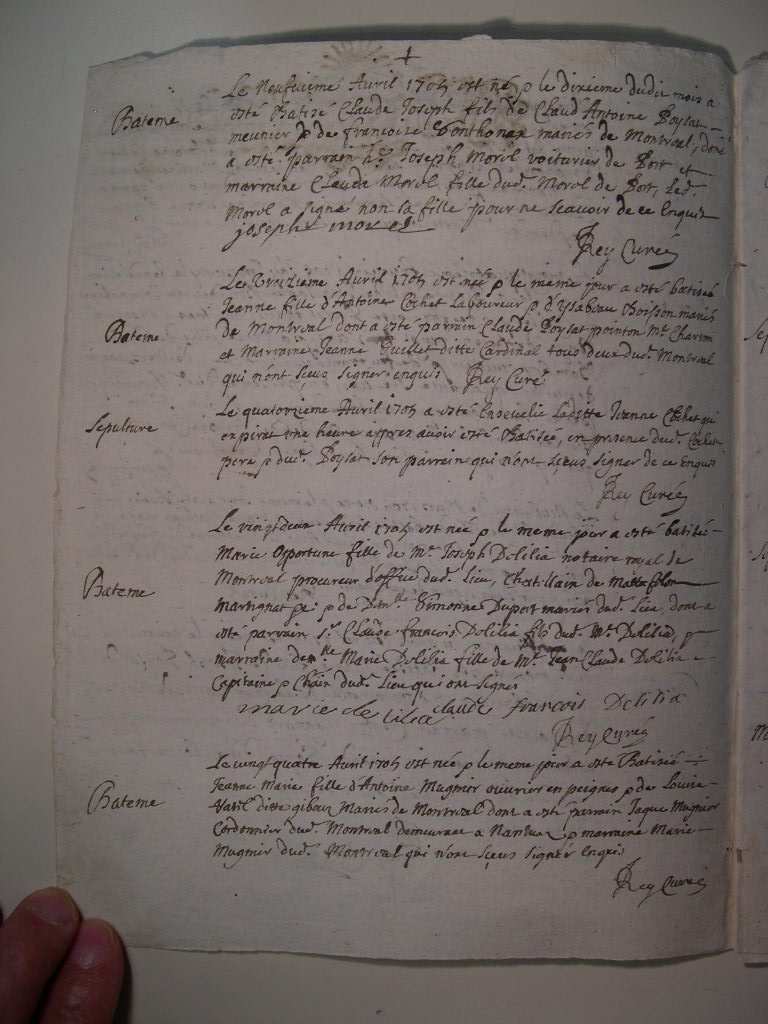 +
Bateme
Le Neufvieme Avril 1705 est né p le dixieme dudit mois a
esté Batisé Claude Joseph fils de Claud Antoine Poysat
meunier p de francoise mariés de Montreal, dont
a esté parrain Joseph Morel voiturier de Port et
marraine Claude Morel fille dud. Morel de Port, led.
Morel a signé non sa fille pour ne scavoir de ce Enquis
joseph morel
Rey Curé
Bateme
Le Treizieme Avril 1705 est née p le meme jour a esté batisée
Jeanne fille d'Antoine Cochet Laboureur p d'ysabeau Boisson mariés
de Montreal dont a esté parrain Claude Poysat pointon Me Charon
et Marraine Jeanne Guillet ditte Cardinal tous deux dud. Montreal
qui n'ont sceus signer enquis Rey Curé
Sepulture
Le quatorzieme Avril 1705 a esté Ensevelie Laditte Jeanne Cochet qui
expirat une heure appres avoir esté Batisée, en presence dud. Cochet
pere p dud. Poysat son parrain qui n'ont sceus signer de ce Enquis
Rey Curé
Bateme
Le vingt deux Avril 1705 est née p le meme jour a esté batisée
Marie Opportune fille de Me Joseph Delilia notaire royal de
Montreal procureur d'office dud. Lieu, Chatellain de Matafelon
Martignat p de Dem.lle Simonne Duport mariés dud. Lieu, dont a
esté parrain Sr. Claude francois Delilia fils dud. Me Delilia, p
marraine dem.lle Marie Delilia fille de Me Jean Claude Delilia
Capitaine p Chain dud. Lieu qui ont signés
marie de lilia claude francois Delilia
Rey Curé
Bateme
Le vingt quatre Avril 1705 est née p le meme jour a esté Batisée
Jeanne Marie fille d'Antoine Mugnier ouvrier en peignes p de Louise
Vatil ditte giboux Mariés de Montreal dont a esté parrain Jaque Mugnier
Cordonnier dud. Montreal demeurant a Nantua p marraine Marie
Mugnier dud. Montreal qui n'ont sceus signer Enquis
Rey Curé